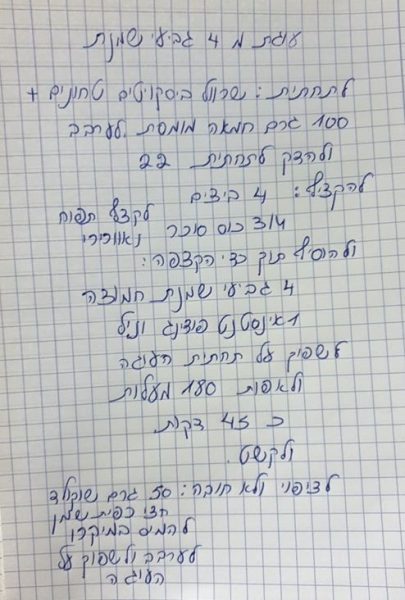 עוגת מ 4 גביעי שמנת
לתחתית: שרוול ביסקוויטים טחונים +
100 גרם חמאה מומסת לערבב
ולהדק לתחתית 22
להקציף: 4 ביצים
3/4 כוס סוכר לקצף תפוח ואוורירי
ולהוסיף תוך כדי הקצפה:
4 גביעי שמנת חמוצה
1 אינסטנט פודינג וניל
לשפוך על תחתית העוגה
ולאפות 180 מעלות
כ 45 דקות
ולקשט.
לציפוי ולא חובה: 50 גרם שוקולד
חצי כפית שמן
להמיס במיקרו
לערבב ולשפוך על
העוגה